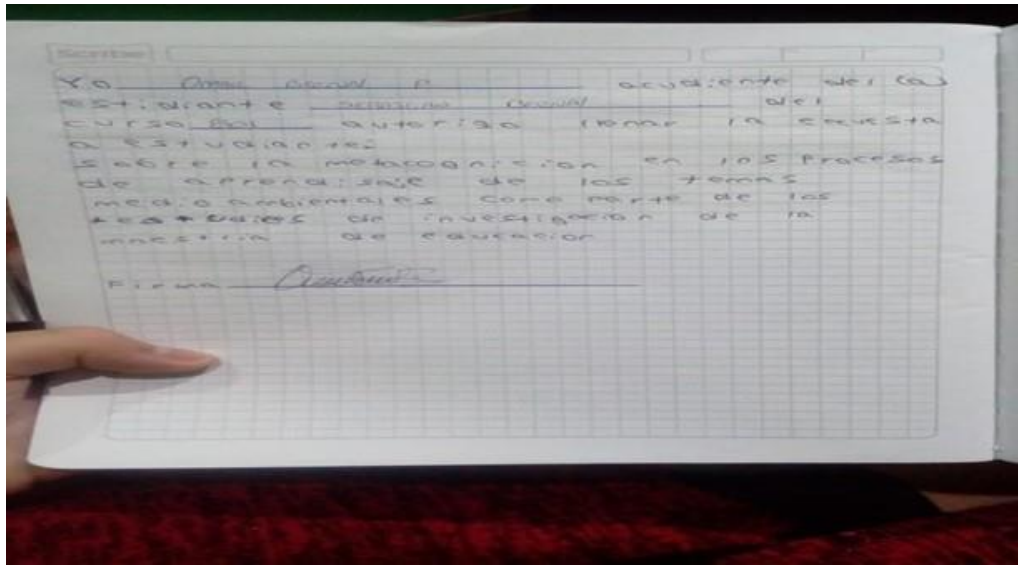 Yo Omar P acudiente del (a)
estidiante del
curso autoriso llenar la encuesta
a estudiantes
sobre la metacognicion en los procesos
de aprendisaje de los temas
medio ambientales como parte de los
de investigacion de la
maestria de educacion
Firma